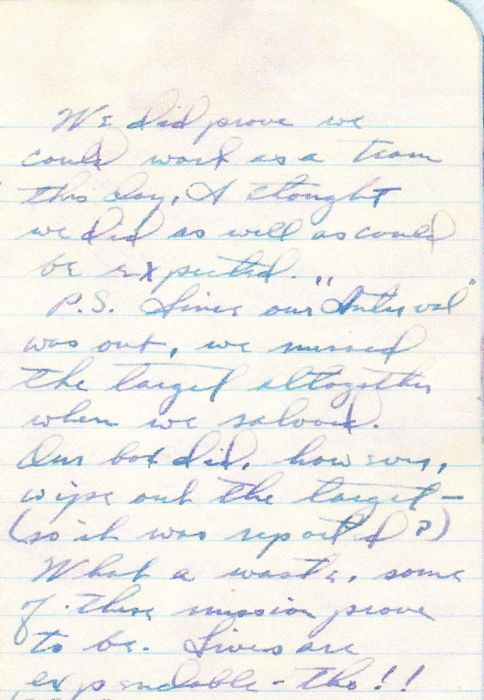 We did prove we
could work as a team
this day, I thought
we did as well as could
be expected.
P.S. Since our "Interval"
was out, we missed
the target altogether
when we salvoed.
Our box did, however,
wipe out the target -
(so it was reported?)
What a waste, some
of these mission prove
to be. Lives are
expendable - tho!!